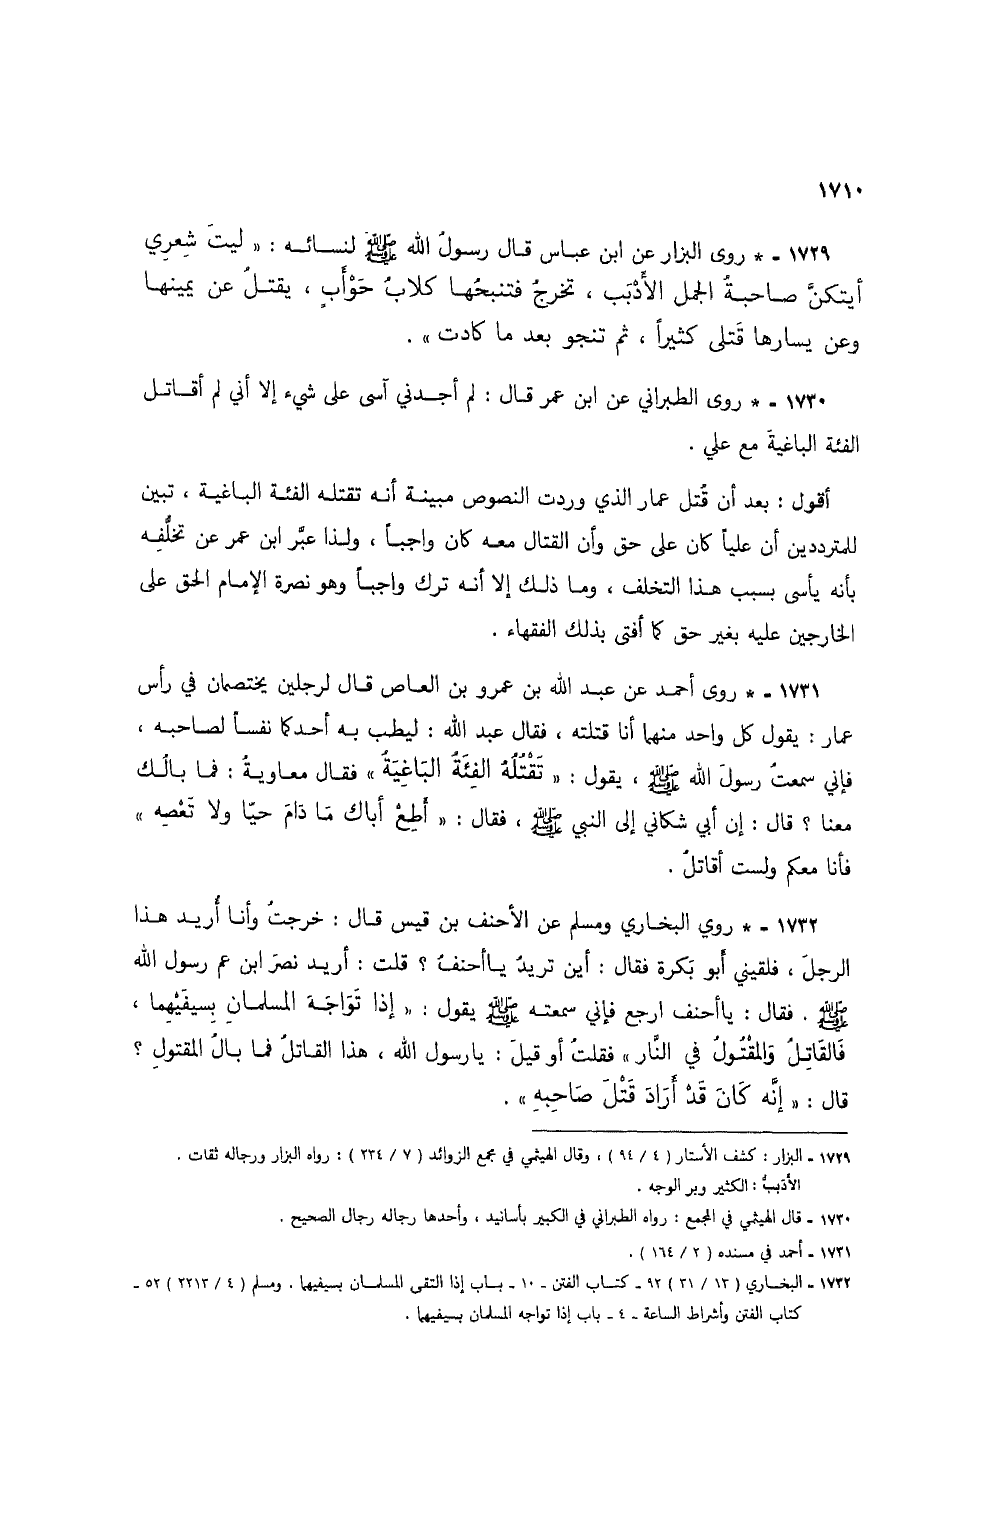 ١٧١٠
١٧٢٩ - * روى البزار عن ابن عباس قال رسولُ الله ﷺ لنسائه : « ليتَ شِعرِي
أيتكنَّ صاحبةُ الجمل الأَدْبَب ، تخرجُ فتنبحُها كلابُ حَوْأَبٍ ، يقتلُ عن يمينها
وعن يسارها قَتلى كثيراً ، ثم تنجو بعد ما كادت » .
١٧٣٠ - * روى الطبراني عن ابن عمر قال : لم أجدني آسى على شيء إلا أني لم أقاتل
الفئة الباغيةَ مع علي .
أقول : بعد أن قُتل عمار الذي وردت النصوص مبينة أنه تقتله الفئة الباغية ، تبين
للمترددين أن علياً كان على حق وأن القتال معه كان واجباً ، ولذا عبَّر ابن عمر عن تخلُّفِه
بأنه يأسى بسبب هذا التخلف ، وما ذلك إلا أنه ترك واجباً وهو نصرة الإمام الحق على
الخارجين عليه بغير حق كما أفتى بذلك الفقهاء .
١٧٣١ - * روى أحمد عن عبد الله بن عمرو بن العاص قال لرجلين يختصمان في رأس
عمار : يقول كل واحد منهما أنا قتلته ، فقال عبد الله : ليطب به أحدكما نفساً لصاحبه ،
فإني سمعتُ رسولَ الله ﷺ ، يقول : « تَقْتُلُهُ الفِئَةُ البَاغِيَةُ » فقال معاويةُ : فما بالُك
معنا ؟ قال : إن أبي شكاني إلى النبي ﷺ ، فقال : « أَطِعْ أباك مَا دَامَ حيّا ولا تَعْصِه »
فأنا معكم ولست أقاتلُ .
١٧٣٢ - * روي البخاري ومسلم عن الأحنف بن قيس قال : خرجتُ وأنا أُريد هذا
الرجلَ ، فلقيني أَبو بَكرة فقال : أين تريدُ ياأحنفُ ؟ قلت : أريد نصرَ ابن عم رسول الله
ﷺ . فقال : ياأحنف ارجع فإني سمعته ﷺ يقول : « إذا تَوَاجَهَ المسلمانِ بِسيفَيْهِما ،
فَالقَاتِلُ وَالمْقْتُولُ في النَّار » فقلتُ أو قيلَ : يارسول الله ، هذا القاتلُ فما بالُ المقتولِ ؟
قال : « إنَّه كَانَ قَدْ أَرَادَ قَتْلَ صَاحِبِهِ » .
١٧٢٩ - البزار : كشف الأستار ( ٤ / ٩٤ ) ، وقال الهيثمي في مجمع الزوائد ( ٧ / ٢٣٤ ) : رواه البزار ورجاله ثقات .
الأدْببُ : الكثير وبر الوجه .
١٧٣٠ - قال الهيثمي في المجمع : رواه الطبراني في الكبير بأسانيد ، وأحدها رجاله رجال الصحيح .
١٧٣١ - أحمد في مسنده ( ٢ / ١٦٤ ) .
١٧٣٢ - البخاري ( ١٣ / ٣١ ) ٩٢ - كتاب الفتن - ١٠ - باب إذا التقى المسلمان بسيفيهما . ومسلم ( ٤ / ٢٢١٣ ) ٥٢ -
كتاب الفتن وأشراط الساعة - ٤ - باب إذا تواجه المسلمان بسيفيهما .